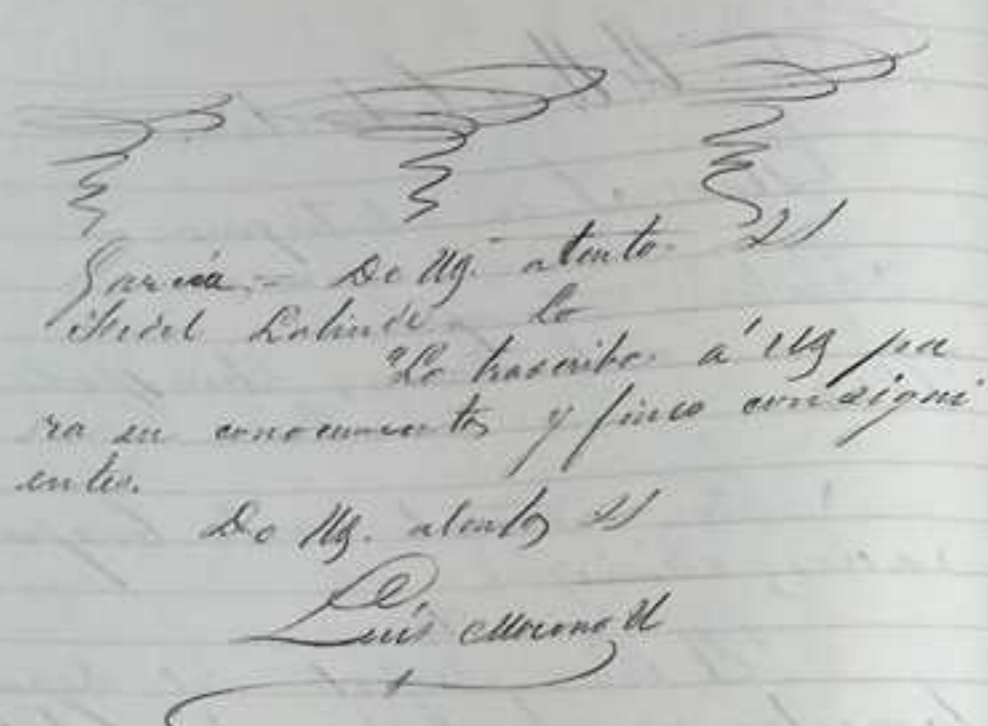 García.- De Ug. atento. SS
Fidel Lalinde. Lo
"Lo trascribo. á Ug pa
ra su conocimiento y fines consigui
entes.
De Ug. atento SS
Luis Moreno U